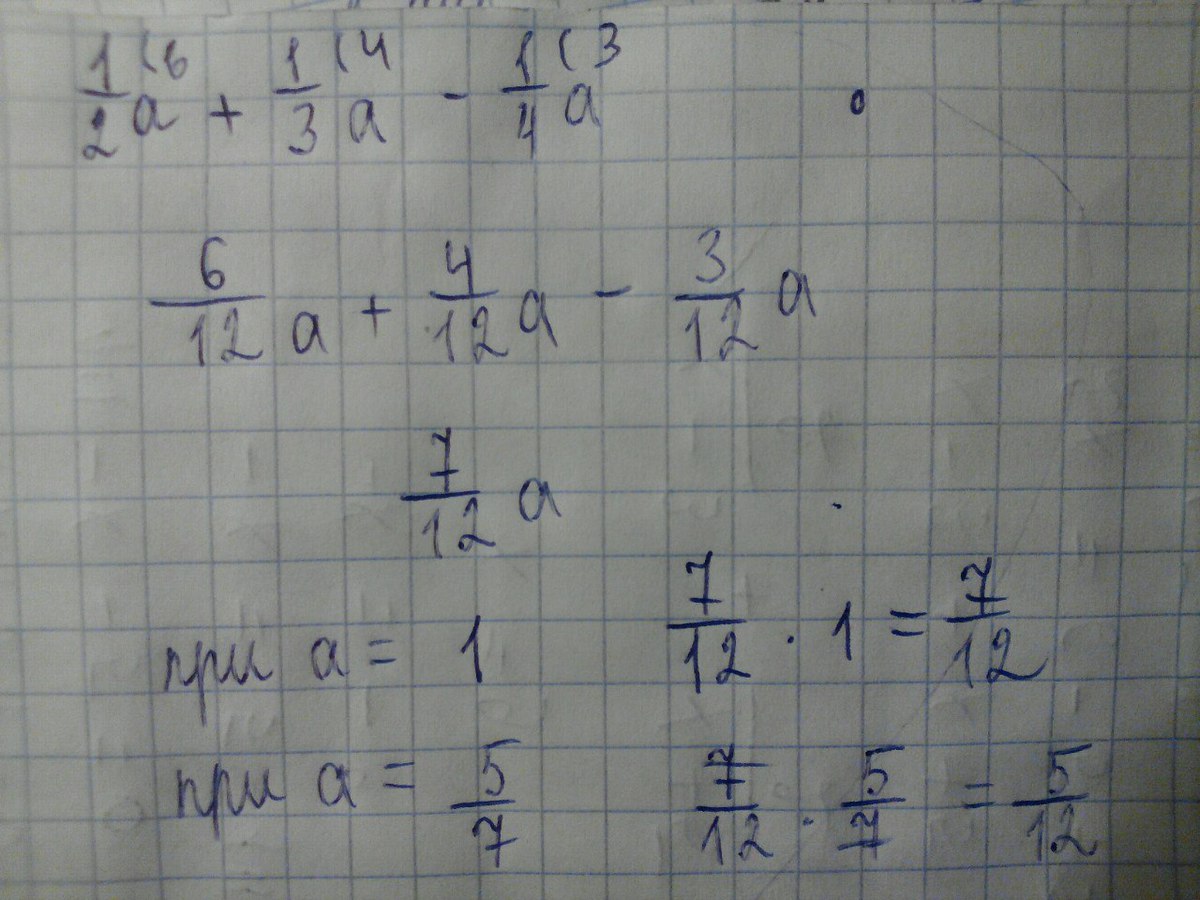 1/2 a (6 + 1/3 a (4 - 1/4 a (3
6/12 a + 4/12 a - 3/12 a
7/12 a
при a = 1 7/12 · 1 = 7/12
при a = 5/7 7/12 · 5/7 = 5/12